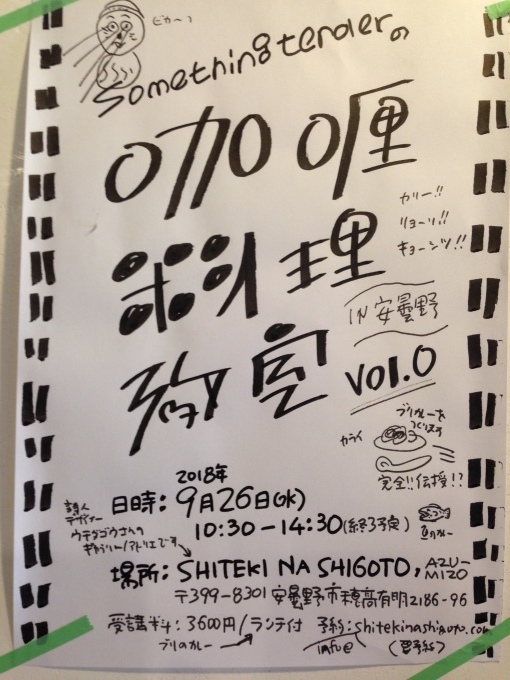 ピカーッ
Something tenderの
咖喱
料理
教室
カリー!!
リョーリ!!
キョーシツ!!
IN 安曇野
VOL.0
ブリカレーを
つくります
カライ
完全!!伝授!?
魚のカレー
2018年
日時:9月26日(水)
10:30-14:30(終了予定)
詩人
デザイナー
ウチダゴウさんの
ギャラリー/アトリエです
場所:SHITEKI NA SHIGOTO, AZUMIZO
〒399-8301 安曇野市穂高有明2186-96
受講料:3600円/ランチ付
ブリのカレー
予約:shitekinashigoto.com
info@
(要予約)